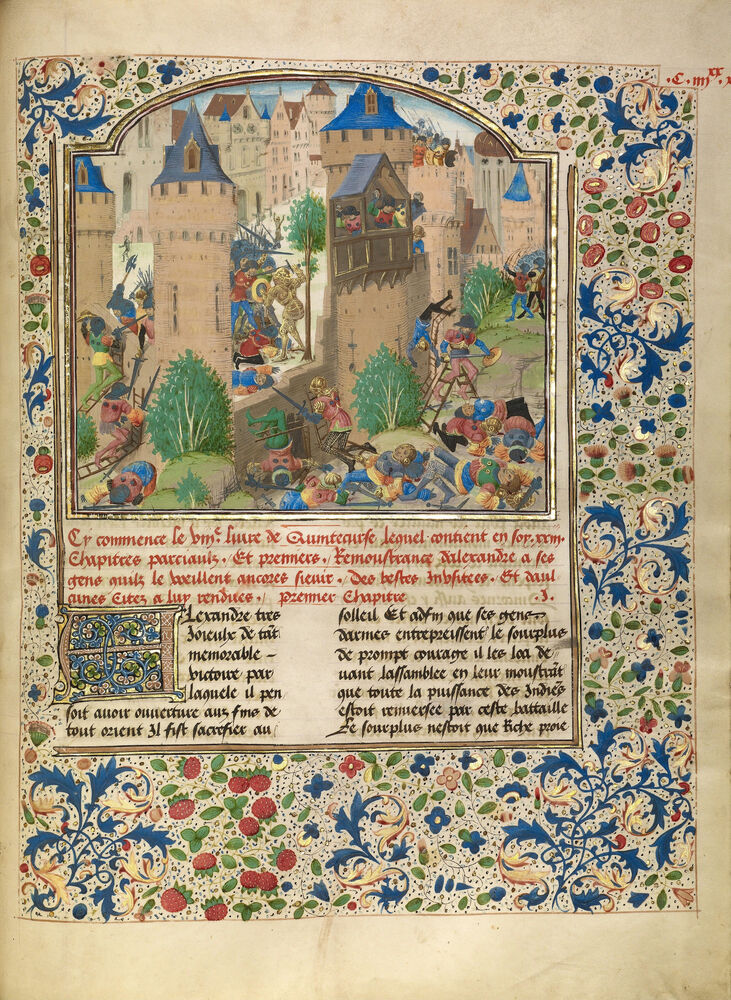 .C. iiii xx x
Cy commence le viiije. liure de Quintecurse lequel contient en soy. xxiii.
Chapitres parciaulx. Et premiers. Remoustrance dalexandre a ses
gens quilz le veillent ancores sieuir. des bestes Inusitees. Et daul
cunes Citez a luy rendues. premier Chapitre .I.
Alexandre tres
Joieulx de tāt
memorable
victoire par
laquele il pen
soit auoir ouuerture aux fins de
tout orient Il fist sacrefier au
solleil Et adfin que ses gens
darmes entrepreissent le sourplus
de prompt courage il les loa de
uant lassamblee en leur moustrāt
que toute la puissance des Indiēs
estoit renuersee par ceste battaille
Le sourplus nestoit que Riche proie